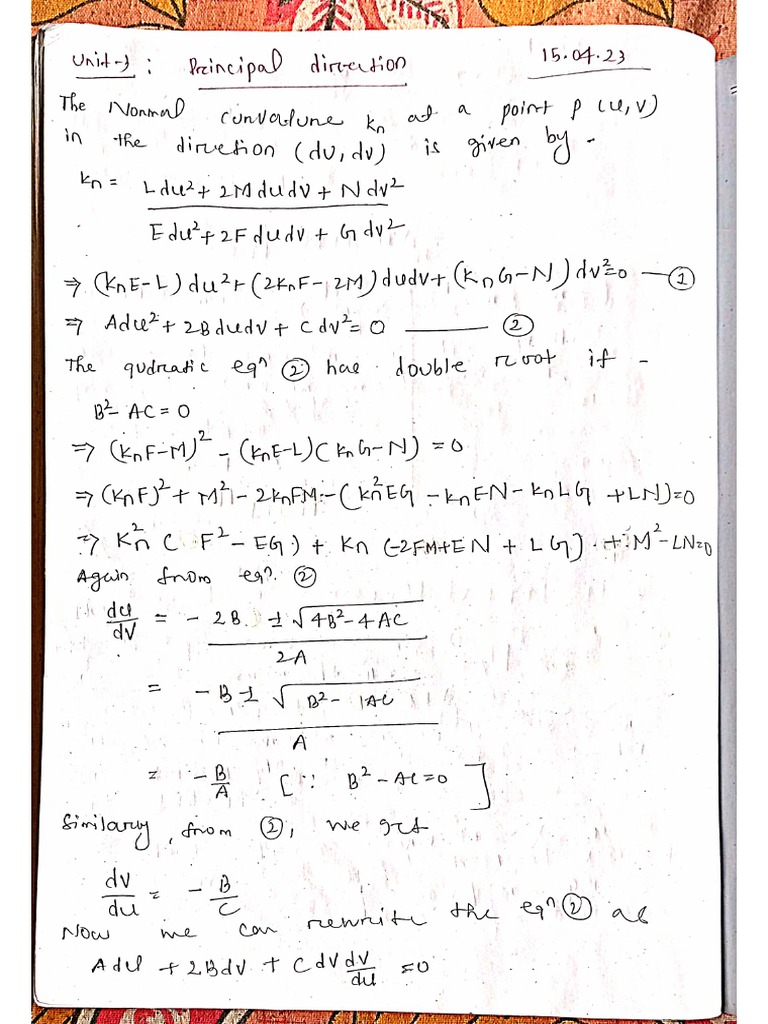 Unit-3 : Principal direction 15.04.23
The Normal curvature kₙ at a point P (u, v)
in the direction (du, dv) is given by -
kₙ = Ldu² + 2M dudv + N dv² / Edu² + 2F dudv + G dv²
⇒ (kₙE-L) du² + (2kₙF - 2M) dudv + (kₙG-N) dv² = 0 — ①
⇒ Adu² + 2B dudv + C dv² = 0 — ②
The qudratic eqⁿ ② has double root if -
B² - AC = 0
⇒ (kₙF-M)² - (kₙE-L)(kₙG-N) = 0
⇒ (kₙF)² + M² - 2kₙFM - (kₙ²EG - kₙEN - kₙLG + LN) = 0
⇒ kₙ² ( F² - EG) + kₙ (-2FM + EN + LG) + M² - LN = 0
Again from eqⁿ. ②
du/dv = - 2B ± √4B² - 4AC / 2A
= - B ± √B² - 1AC / A
= - B/A [∵ B² - AC = 0]
Similary, from ②, we get
dv/du = - B/C
Now we can rewrite the eqⁿ ② as
Adu + 2Bdv + Cdv dv/du = 0